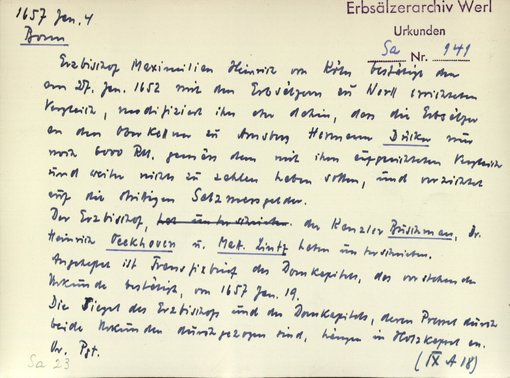 1657 Jan. 4
Bonn
Erbsälzerarchiv Werl
Urkunden
Sa Nr. 141
Erzbischof Maximilian Heinrich von Köln bestätigt den
am 27. Jan. 1652 mit den Erbsälzern zu Werl errichteten
Vergleich, modifiziert ihn aber dahin, dass die Erbsälzer
an den Oberkellner zu Arnsberg Hermann Dücker nur
noch 6000 Rtl. gemäss dem mit ihm aufgerichteten Vergleich
und weiter nichts zu zahlen haben sollen, und verzichtet
auf die strittigen Salzmessgelder.
Der Erzbischof, hat unterschrieben der Kanzler Buschman, Dr.
Heinrich Veekhoven u. Mat. Lintz haben unterschrieben.
Angehängt ist Transfixbrief des Domkapitels, das vorstehende
Urkunde bestätigt, von 1657 Jan. 19.
Die Siegel des Erzbischofs und des Domkapitels, deren Pressel durch
beide Urkunden durchgezogen sind, hängen in Holzkapsel an.
Or. Pgt.
(IX A 18)
Sa 23